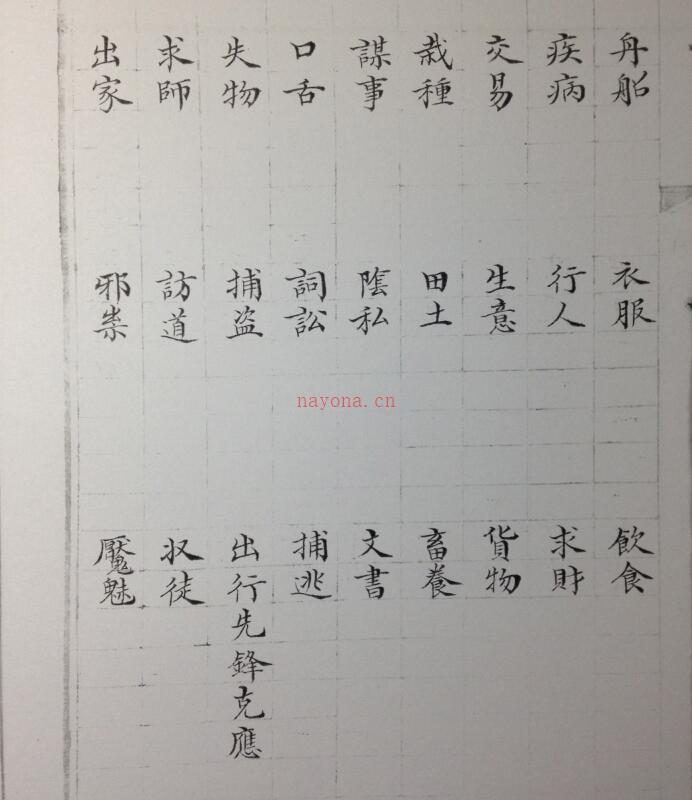 舟船 衣服 飲食
疾病 行人 求財
交易 生意 貨物
栽種 田土 畜養
謀事 陰私 文書
口舌 詞訟 捕逃
失物 捕盗 出行先鋒克應
求師 訪道 収徒
出家 邪祟 魘魅
nayona.cn